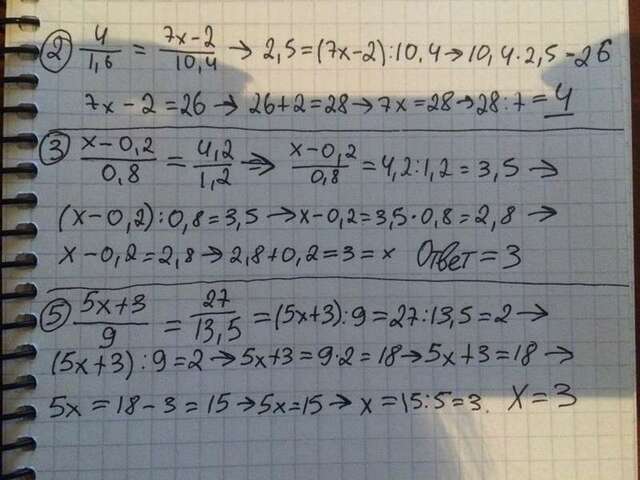 ② 4/1,6 = 7x-2/10,4 → 2,5=(7x-2):10,4→10,4·2,5-26
7x-2=26→26+2=28→7x=28→28:7=4
③ x-0,2/0,8 = 4,2/1,2 ⇒ x-0,2/0,8 =4,2:1,2=3,5→
(x-0,2):0,8=3,5→x-0,2=3,5·0,8=2,8→
x-0,2=2,8→2,8+0,2=3=x Ответ=3
⑤ 5x+3/9 = 27/13,5 =(5x+3):9=27:13,5=2→
(5x+3):9=2→5x+3=9·2=18→5x+3=18→
5x=18-3=15→5x=15→x=15:5=3. X=3